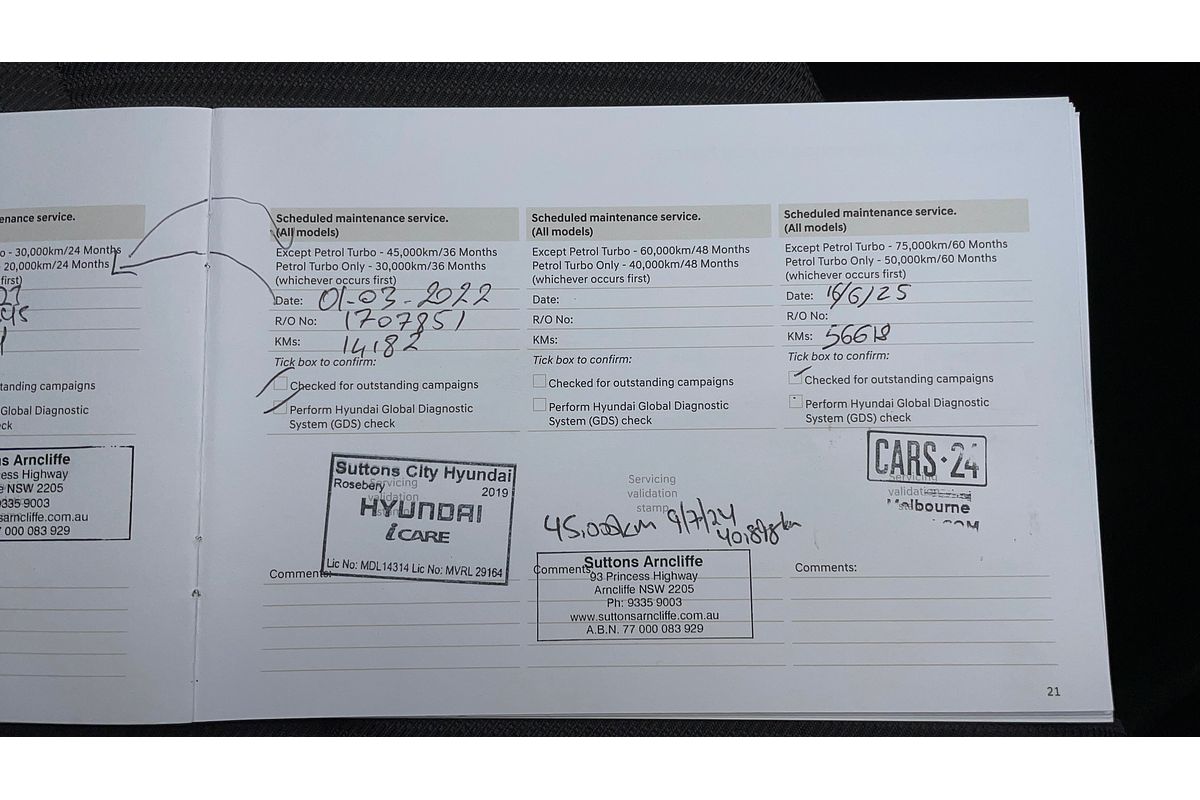 enance service.
o - 30,000km/24 Months
- 20,000km/24 Months
first)
tanding campaigns
Global Diagnostic
ck
s Arncliffe
cess Highway
e NSW 2205
9335 9003
sarncliffe.com.au
7 000 083 929
Scheduled maintenance service.
(All models)
Except Petrol Turbo - 45,000km/36 Months
Petrol Turbo Only - 30,000km/36 Months
(whichever occurs first)
Date: 01-03-2022
R/O No: 1707851
KMs: 14,182
Tick box to confirm:
Checked for outstanding campaigns
Perform Hyundai Global Diagnostic
System (GDS) check
Suttons City Hyundai
Rosebery 2019
Servicing
validation
HYUNDAI
iCARE
Lic No: MDL14314 Lic No: MVRL 29164
Comments:
Scheduled maintenance service.
(All models)
Except Petrol Turbo - 60,000km/48 Months
Petrol Turbo Only - 40,000km/48 Months
(whichever occurs first)
Date:
R/O No:
KMs:
Tick box to confirm:
Checked for outstanding campaigns
Perform Hyundai Global Diagnostic
System (GDS) check
Servicing
validation
stamp
45,000km 9/7/24
40,878km
Comments:
Suttons Arncliffe
93 Princess Highway
Arncliffe NSW 2205
Ph: 9335 9003
www.suttonsarncliffe.com.au
A.B.N. 77 000 083 929
Scheduled maintenance service.
(All models)
Except Petrol Turbo - 75,000km/60 Months
Petrol Turbo Only - 50,000km/60 Months
(whichever occurs first)
Date: 16/6/25
R/O No:
KMs: 56618
Tick box to confirm:
Checked for outstanding campaigns
Perform Hyundai Global Diagnostic
System (GDS) check
CARS·24
Servicing
validation
Melbourne
Comments:
21